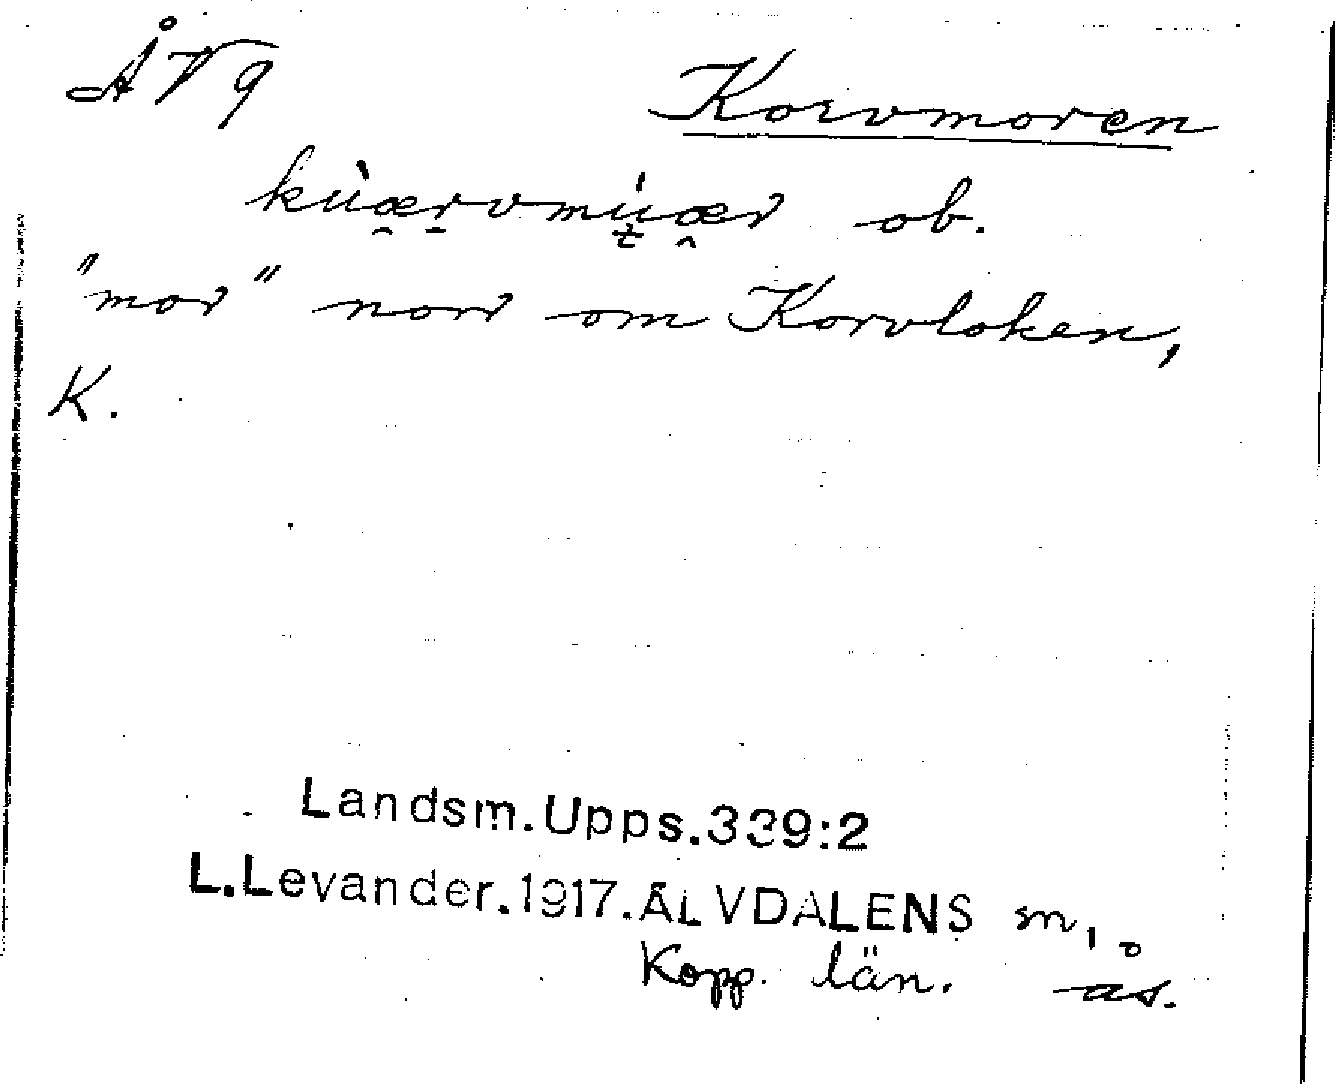 ÅV9 Korvmoren
kùærvmúær ob.
"mor" norr om Korvloken,
K.
Landsm.Upps.339:2
L.Levander.1917.ÄLVDALENS sn,
Kopp. län. ås.